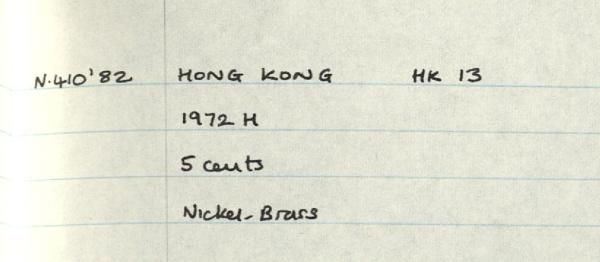 N.410'82 HONG KONG HK 13
1972 H
5 cents
Nickel-Brass